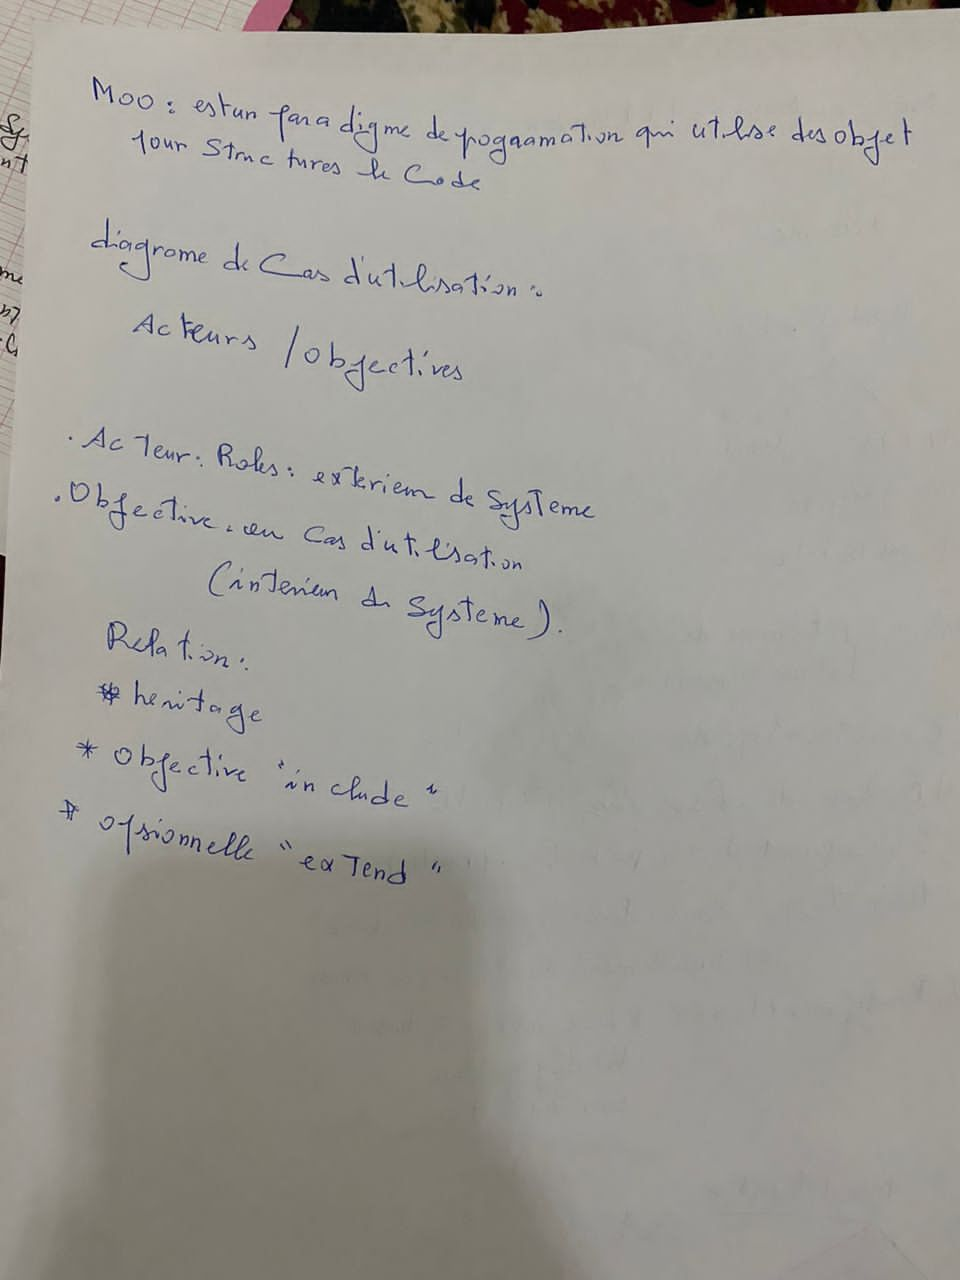 Moo : est un paradigme de pogramation qui utilise des objet
pour Structures le Code
diagrame de Cas d'utilisation :
Acteurs / objectives
. Acteur : Roles : exterieur de Systeme
. Objective : un Cas d'utilisation
(interieur du Systeme).
Relation :
* heritage
* objective "include"
* opsionnelle "extend"